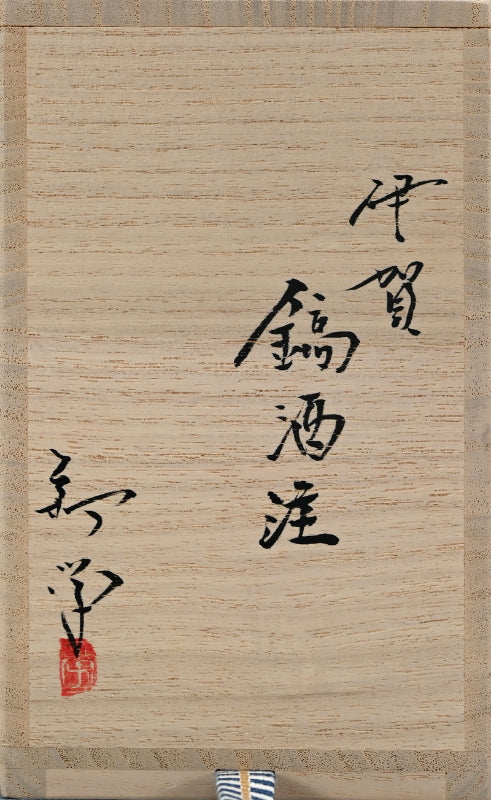 伊賀
鎬酒注
新学